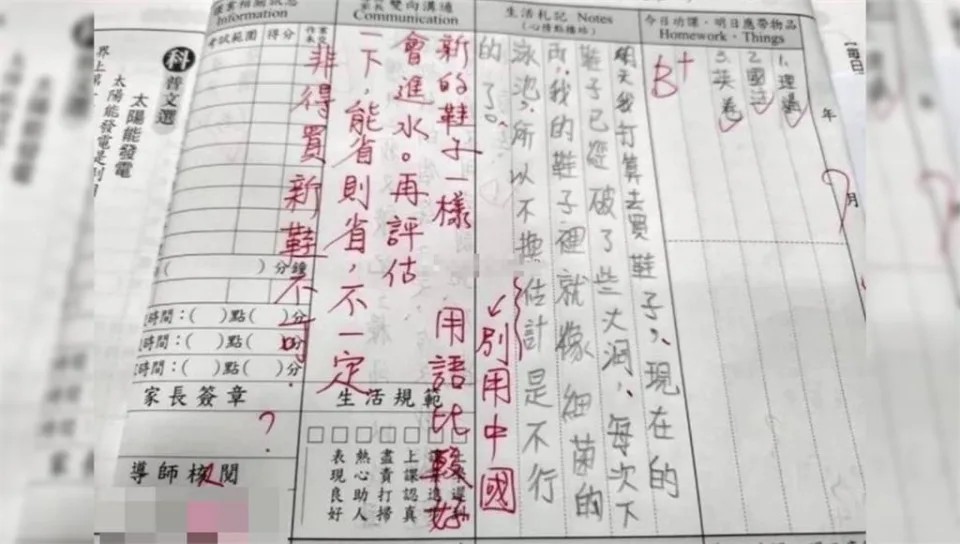 今日功課.明日應帶物品
Homework.Things
年
月
2.國
3.英卷
B+
生活札記 Notes
(心情點播站)
明天我打算去買鞋子,現在的
鞋子已經破了些大洞,每次下
雨,我的鞋子裡就像細菌的
泳池,所以不換估計是不行
的了。
別用中國
用語比較好
雙向溝通
Communication
新的鞋子一樣
會進水。再評估
一下,能省則省,不一定
非得買新鞋不可.
生活規範
上課認真
盡責打掃
熱心助人
表現良好
Information
考試範圍
得分
( )分鐘
時間:( )點( )分
時間:( )點( )分
時間:( )點( )分
家長簽章
?
導師核閱
科普文選
太陽能發電
太陽能發電是別
【每日